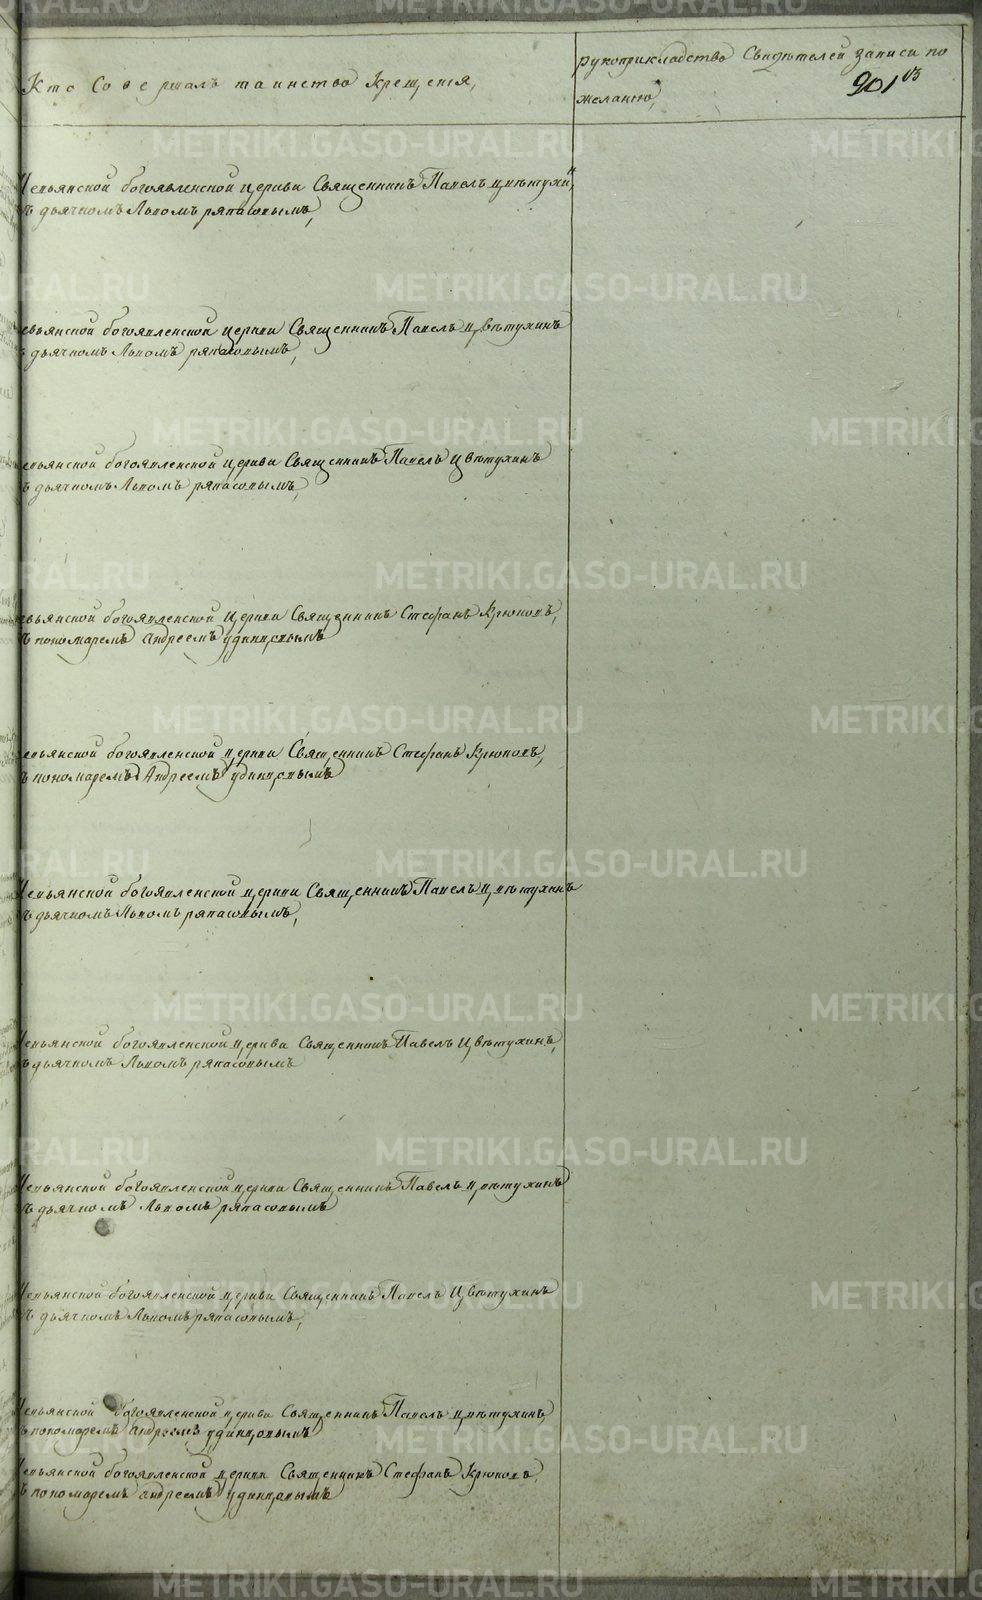 Кто Совершалъ таинство Крещенія,
рукоприкладство Свидѣтелей записи по
желанію,
901 об
Невьянской богоявленской церкви Священникъ Павелъ Цвѣтухинъ
съ дьячкомъ Львомъ ряпасовымъ,
Невьянской богоявленской церкви Священникъ Павелъ Цвѣтухинъ
съ дьячкомъ Львомъ ряпасовымъ,
Невьянской богоявленской церкви Священникъ Павелъ Цвѣтухинъ
съ дьячкомъ Львомъ ряпасовымъ,
Невьянской богоявленской церкви Священникъ Стефанъ Крюковъ,
съ пономаремъ Андреемъ удинцовымъ
Невьянской богоявленской церкви Священникъ Стефанъ Крюковъ,
съ пономаремъ Андреемъ удинцовымъ
Невьянской богоявленской церкви Священникъ Павелъ Цвѣтухинъ
съ дьячкомъ Львомъ ряпасовымъ,
Невьянской богоявленской церкви Священникъ Павелъ Цвѣтухинъ,
съ дьячкомъ Львомъ ряпасовымъ
Невьянской богоявленской церкви Священникъ Павелъ Цвѣтухинъ
съ дьячкомъ Львомъ ряпасовымъ
Невьянской богоявленской церкви Священникъ Павелъ Цвѣтухинъ
съ дьячкомъ Львомъ ряпасовымъ,
Невьянской богоявленской церкви Священникъ Павелъ Цвѣтухинъ
съ пономаремъ Андреемъ удинцовымъ
Невьянской богоявленской церкви Священникъ Стефанъ Крюковъ,
съ пономаремъ андреемъ удинцовымъ
METRIKI.GASO-URAL.RU